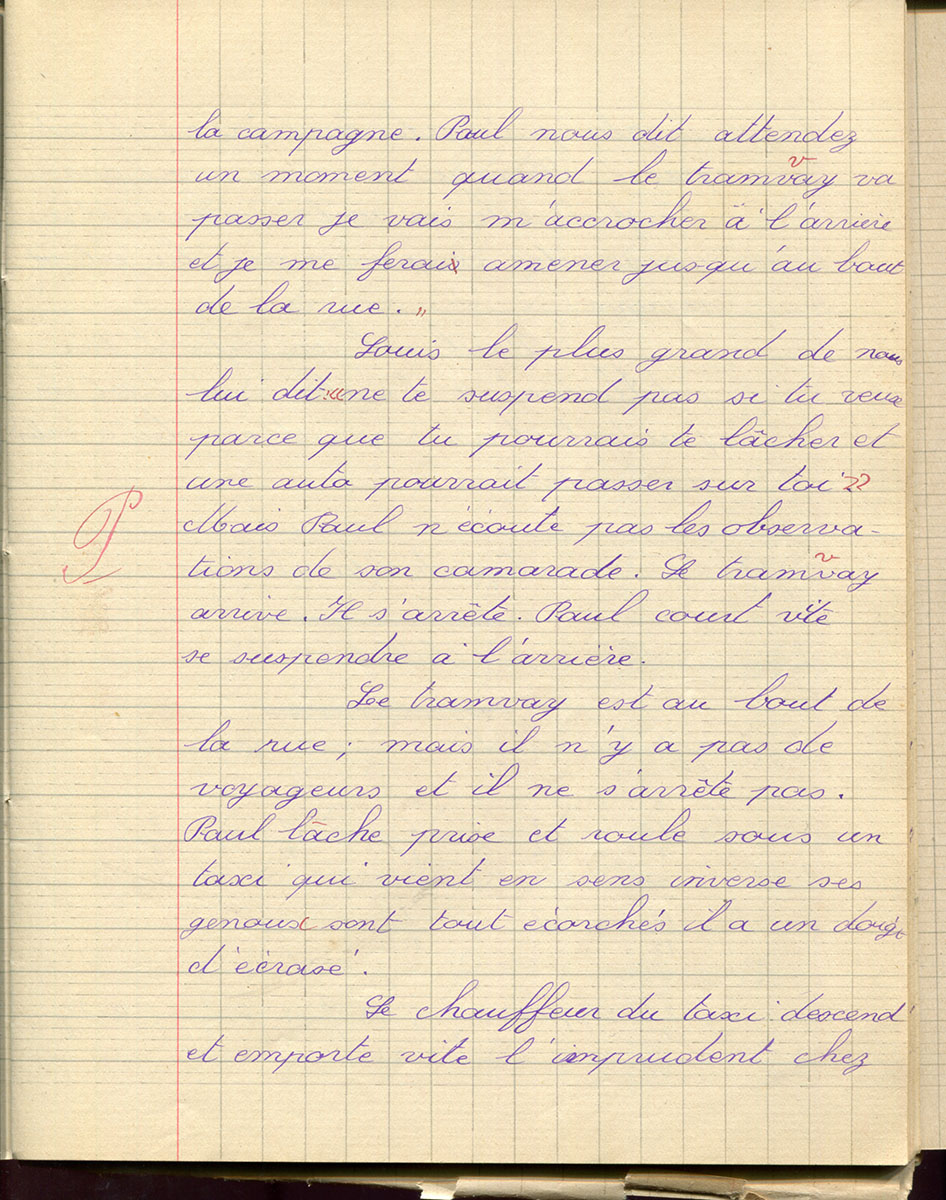 la campagne. Paul nous dit attendez
un moment quand le tramvay va
passer je vais m'accrocher à l'arrière
et je me ferais amener jusqu'au bout
de la rue. "
Louis le plus grand de nous
lui dit: "ne te suspend pas si tu veux
parce que tu pourrais te lâcher et
une auto pourrait passer sur toi"
Mais Paul n'écoute pas les observa-
tions de son camarade. Le tramvay
arrive. Il s'arrête. Paul court vite
se suspendre à l'arrière.
Le tramvay est au bout de
la rue; mais il n'y a pas de
voyageurs et il ne s'arrête pas.
Paul lâche prise et roule sous un
taxi qui vient en sens inverse ses
genoux sont tout écorchés il a un doigt
d'écrasé.
Le chauffeur du taxi descend
et emporte vite l'imprudent chez